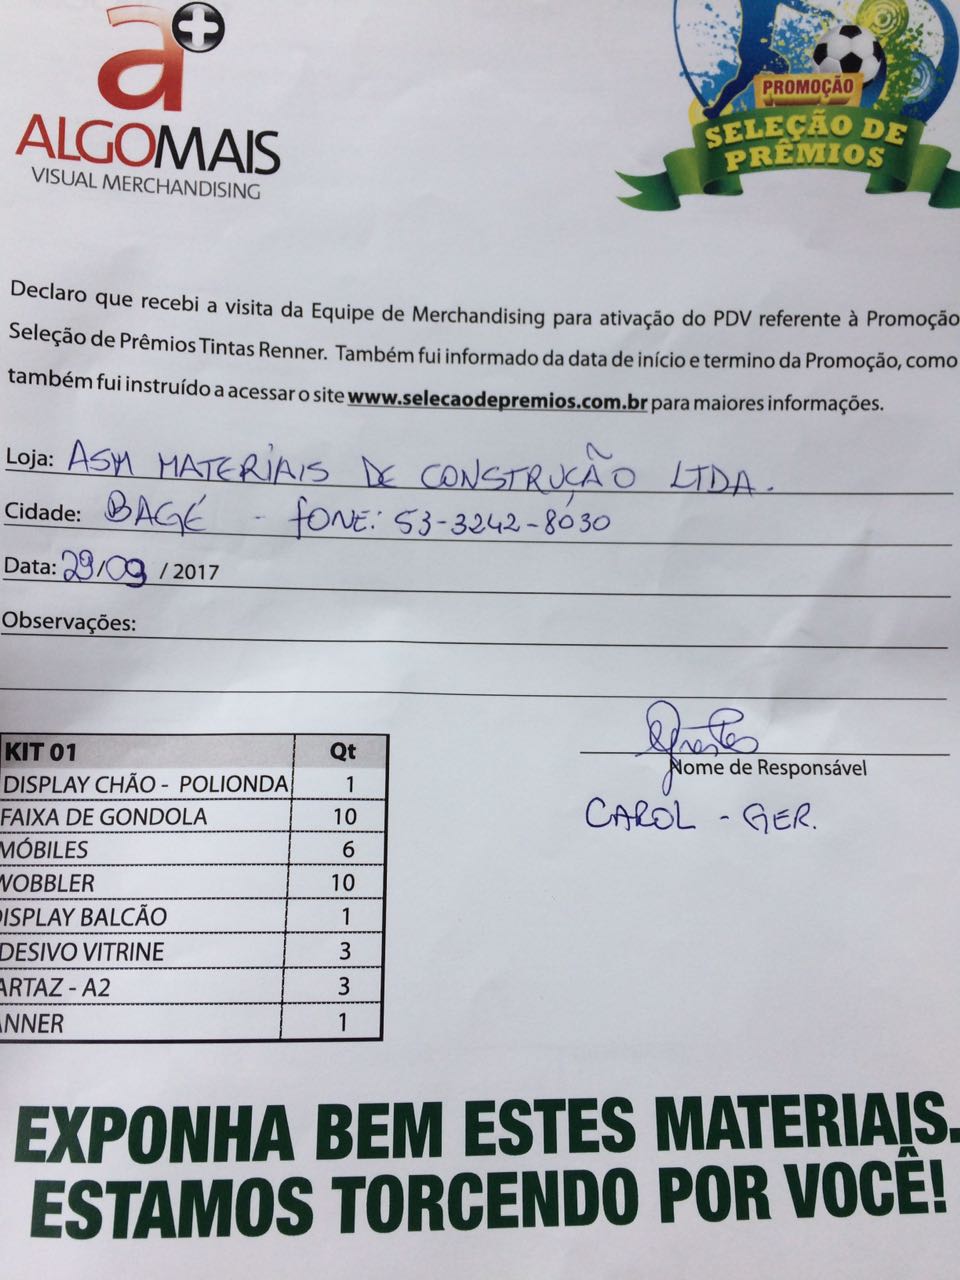 a+
ALGOMAIS
VISUAL MERCHANDISING
PROMOÇÃO
SELEÇÃO DE
PRÊMIOS
Declaro que recebi a visita da Equipe de Merchandising para ativação do PDV referente à Promoção
Seleção de Prêmios Tintas Renner. Também fui informado da data de início e termino da Promoção, como
também fui instruído a acessar o site www.selecaodepremios.com.br para maiores informações.
Loja: ASM MATERIAIS DE CONSTRUÇÃO LTDA.
Cidade: BAGÉ - FONE: 53-3242-8030
Data: 29/09 / 2017
Observações:
Nome de Responsável
CAROL - GER.
KIT 01 Qt
DISPLAY CHÃO - POLIONDA 1
FAIXA DE GONDOLA 10
MÓBILES 6
WOBBLER 10
DISPLAY BALCÃO 1
DESIVO VITRINE 3
ARTAZ - A2 3
ANNER 1
EXPONHA BEM ESTES MATERIAIS.
ESTAMOS TORCENDO POR VOCÊ!